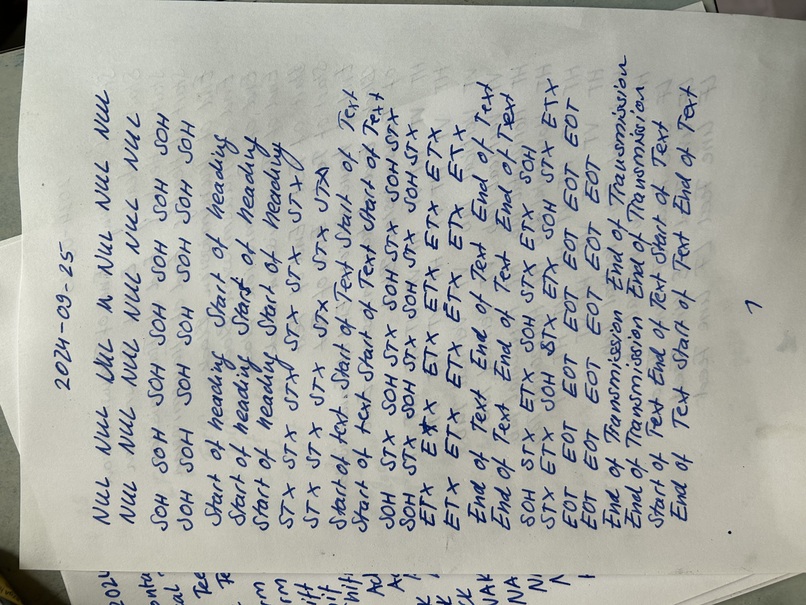 2024-09-25
NUL NUL NUL N NUL NUL NUL
NUL NUL NUL NUL NUL NUL
SOH SOH SOH SOH SOH SOH SOH
SOH SOH SOH SOH SOH SOH SOH
Start of heading Start of heading
Start of heading Start of heading
Start of heading Start of heading
STX STX STX STX STX STX
STX STX STX STX STX STX
Start of text. Start of Text Start of Text
Start of text Start of Text Start of Text
SOH STX SOH STX SOH STX SOH STX
SOH STX SOH STX SOH STX SOH STX
ETX ETX ETX ETX ETX ETX
ETX ETX ETX ETX ETX ETX
End of Text End of Text End of Text
End of Text End of Text End of Text
SOH STX ETX SOH STX ETX SOH
STX ETX SOH STX ETX SOH STX ETX
EOT EOT EOT EOT EOT EOT EOT
EOT EOT EOT EOT EOT EOT
End of Transmission End of Transmission
End of Transmission End of Transmission
Start of Text End of Text Start of Text
End of Text Start of Text End of Text
1